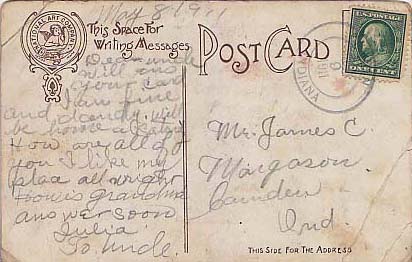 May 8 1911
INTERNATIONAL ART COMPANY
This Space For
Writing Messages
POST CARD
U.S. POSTAGE
ONE CENT
Dear uncle
will
your car
I am fine
and dandy will
be home
How are all of
you I like my
plac all wright
how is grandma
answer soon
Julia
To uncle.
Mr. James C.
Margason
Camden
Ind
THIS SIDE FOR THE ADDRESS